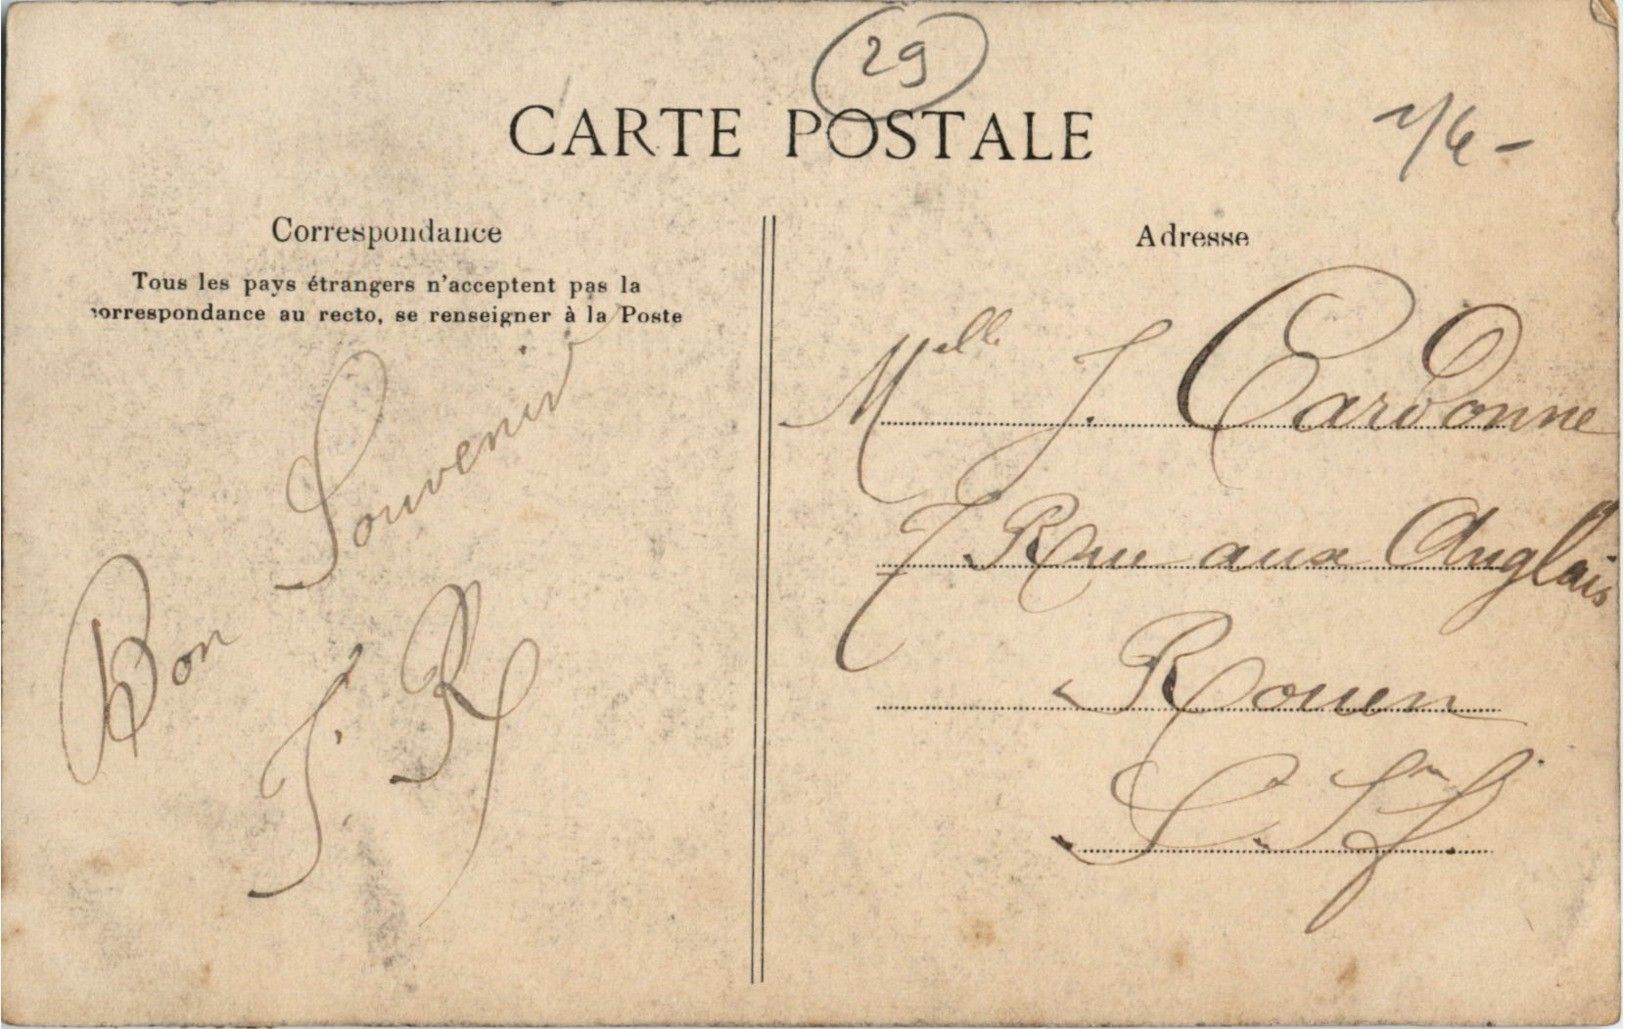 29
CARTE POSTALE
Correspondance
Tous les pays étrangers n'acceptent pas la
correspondance au recto, se renseigner à la Poste
Bon Souvenir
J. R
Adresse
Melle J. Cardonne
7 Rue aux Anglais
Rouen
S. Inf.